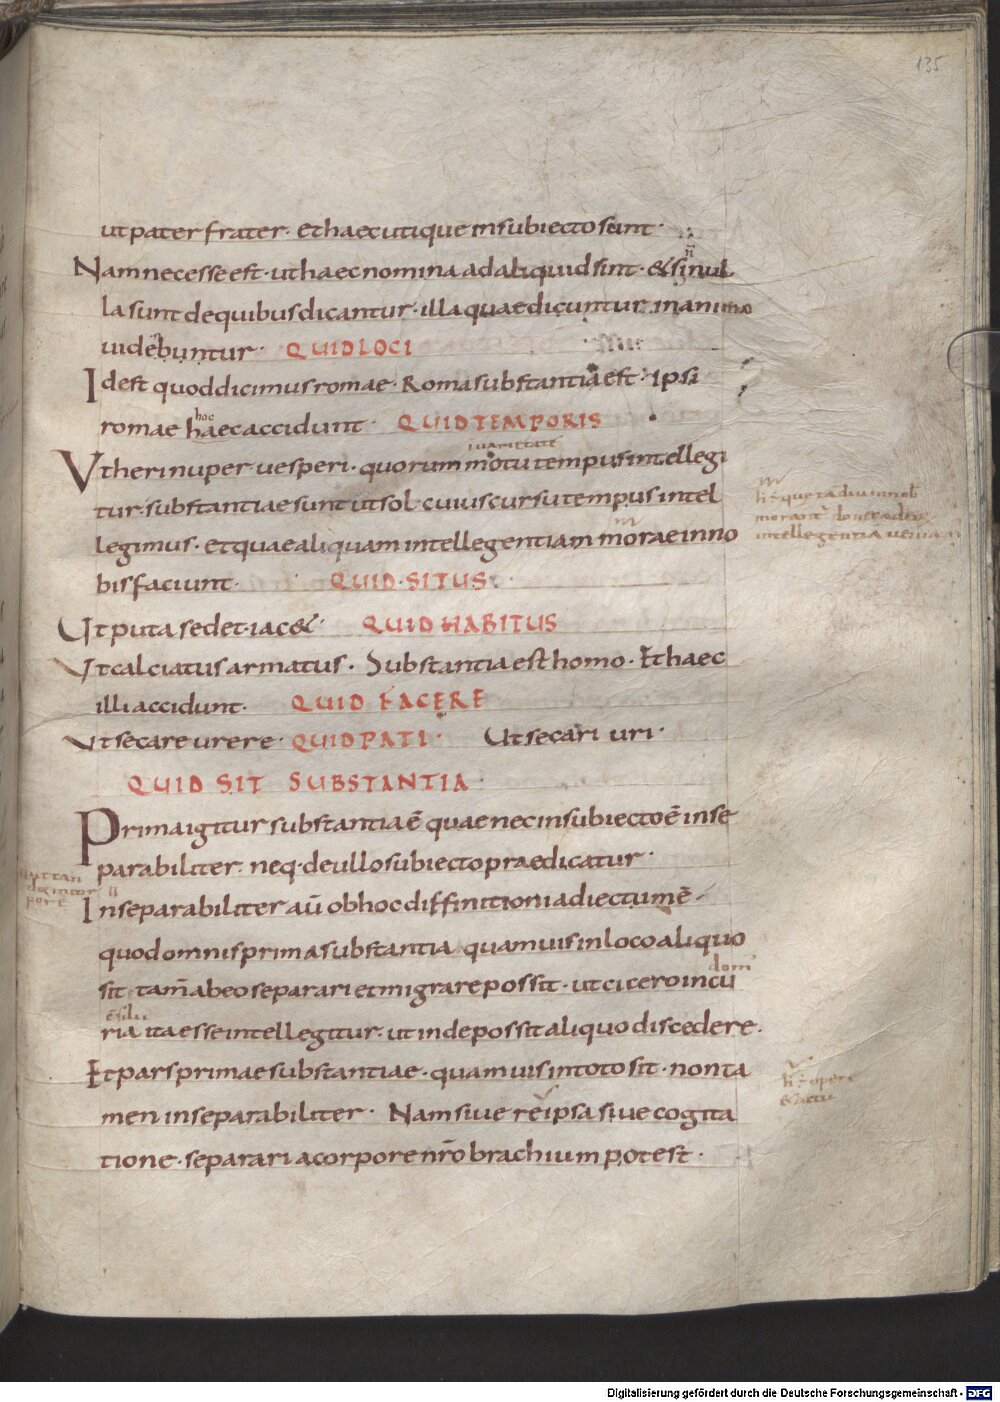 135
ut pater frater. et haec utique in subiecto sunt.
Nam necesse est. ut haec nomina ad aliquid sint. & si nul
la sunt de quibus dicantur. illa quae dicuntur. in animo
uidebuntur. QUID LOCI
Id est quod dicimus romae. Roma substantia est. ipsi
hoc
romae haec accidunt. QUID TEMPORIS
Ut heri nuper uesperi. quorum motu tempus intellegi
tur. substantiae sunt ut sol. cuius cursu tempus intel
legimus. et quae aliquam intellegentiam morae in no
bis faciunt. QUID SITUS.
Ut puta sedet. iac& QUID HABITUS
Ut calciatus armatus. Substantia est homo. Et haec
illi accidunt. QUID FACERE
Ut secare urere. QUID PATI. Ut secari uri.
QUID SIT SUBSTANTIA.
Prima igitur substantia ē quae nec in subiecto ē inse
parabiliter. neq. de ullo subiecto praedicatur.
Inseparabiliter aū ob hoc diffinitioni adiectum ē
quod omnis prima substantia quamuis in loco aliquo
sit tam̄ ab eo separari et migrare possit. ut cicero in cu
ria ita esse intellegitur. ut inde possit aliquo discedere.
Et pars primae substantiae. quamuis in toto sit. non ta
men inseparabiliter. Nam siue re ipsa siue cogita
tione. separari a corpore nr̄o brachium potest.
Digitalisierung gefördert durch die Deutsche Forschungsgemeinschaft - DFG